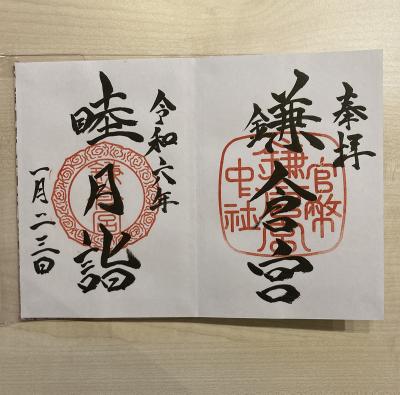 奉拝
鎌倉宮
官幣
中社
鎌倉宮
令和六年
睦月詣
一月二三日